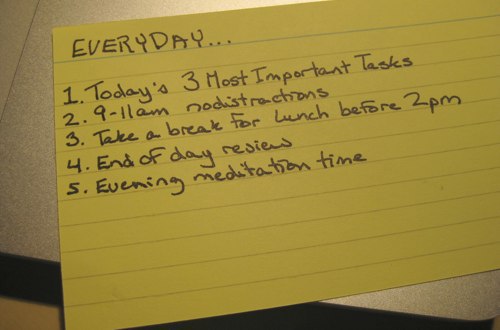 EVERYDAY...
1. Today's 3 Most Important Tasks
2. 9-11am nodistractions
3. Take a break for Lunch before 2pm
4. End of day review
5. Evening meditation time